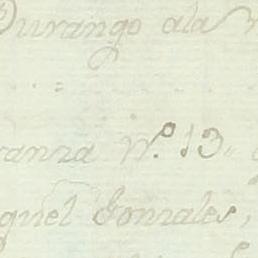 Durango ala
ranza N.º 13.
guel Gonzales,